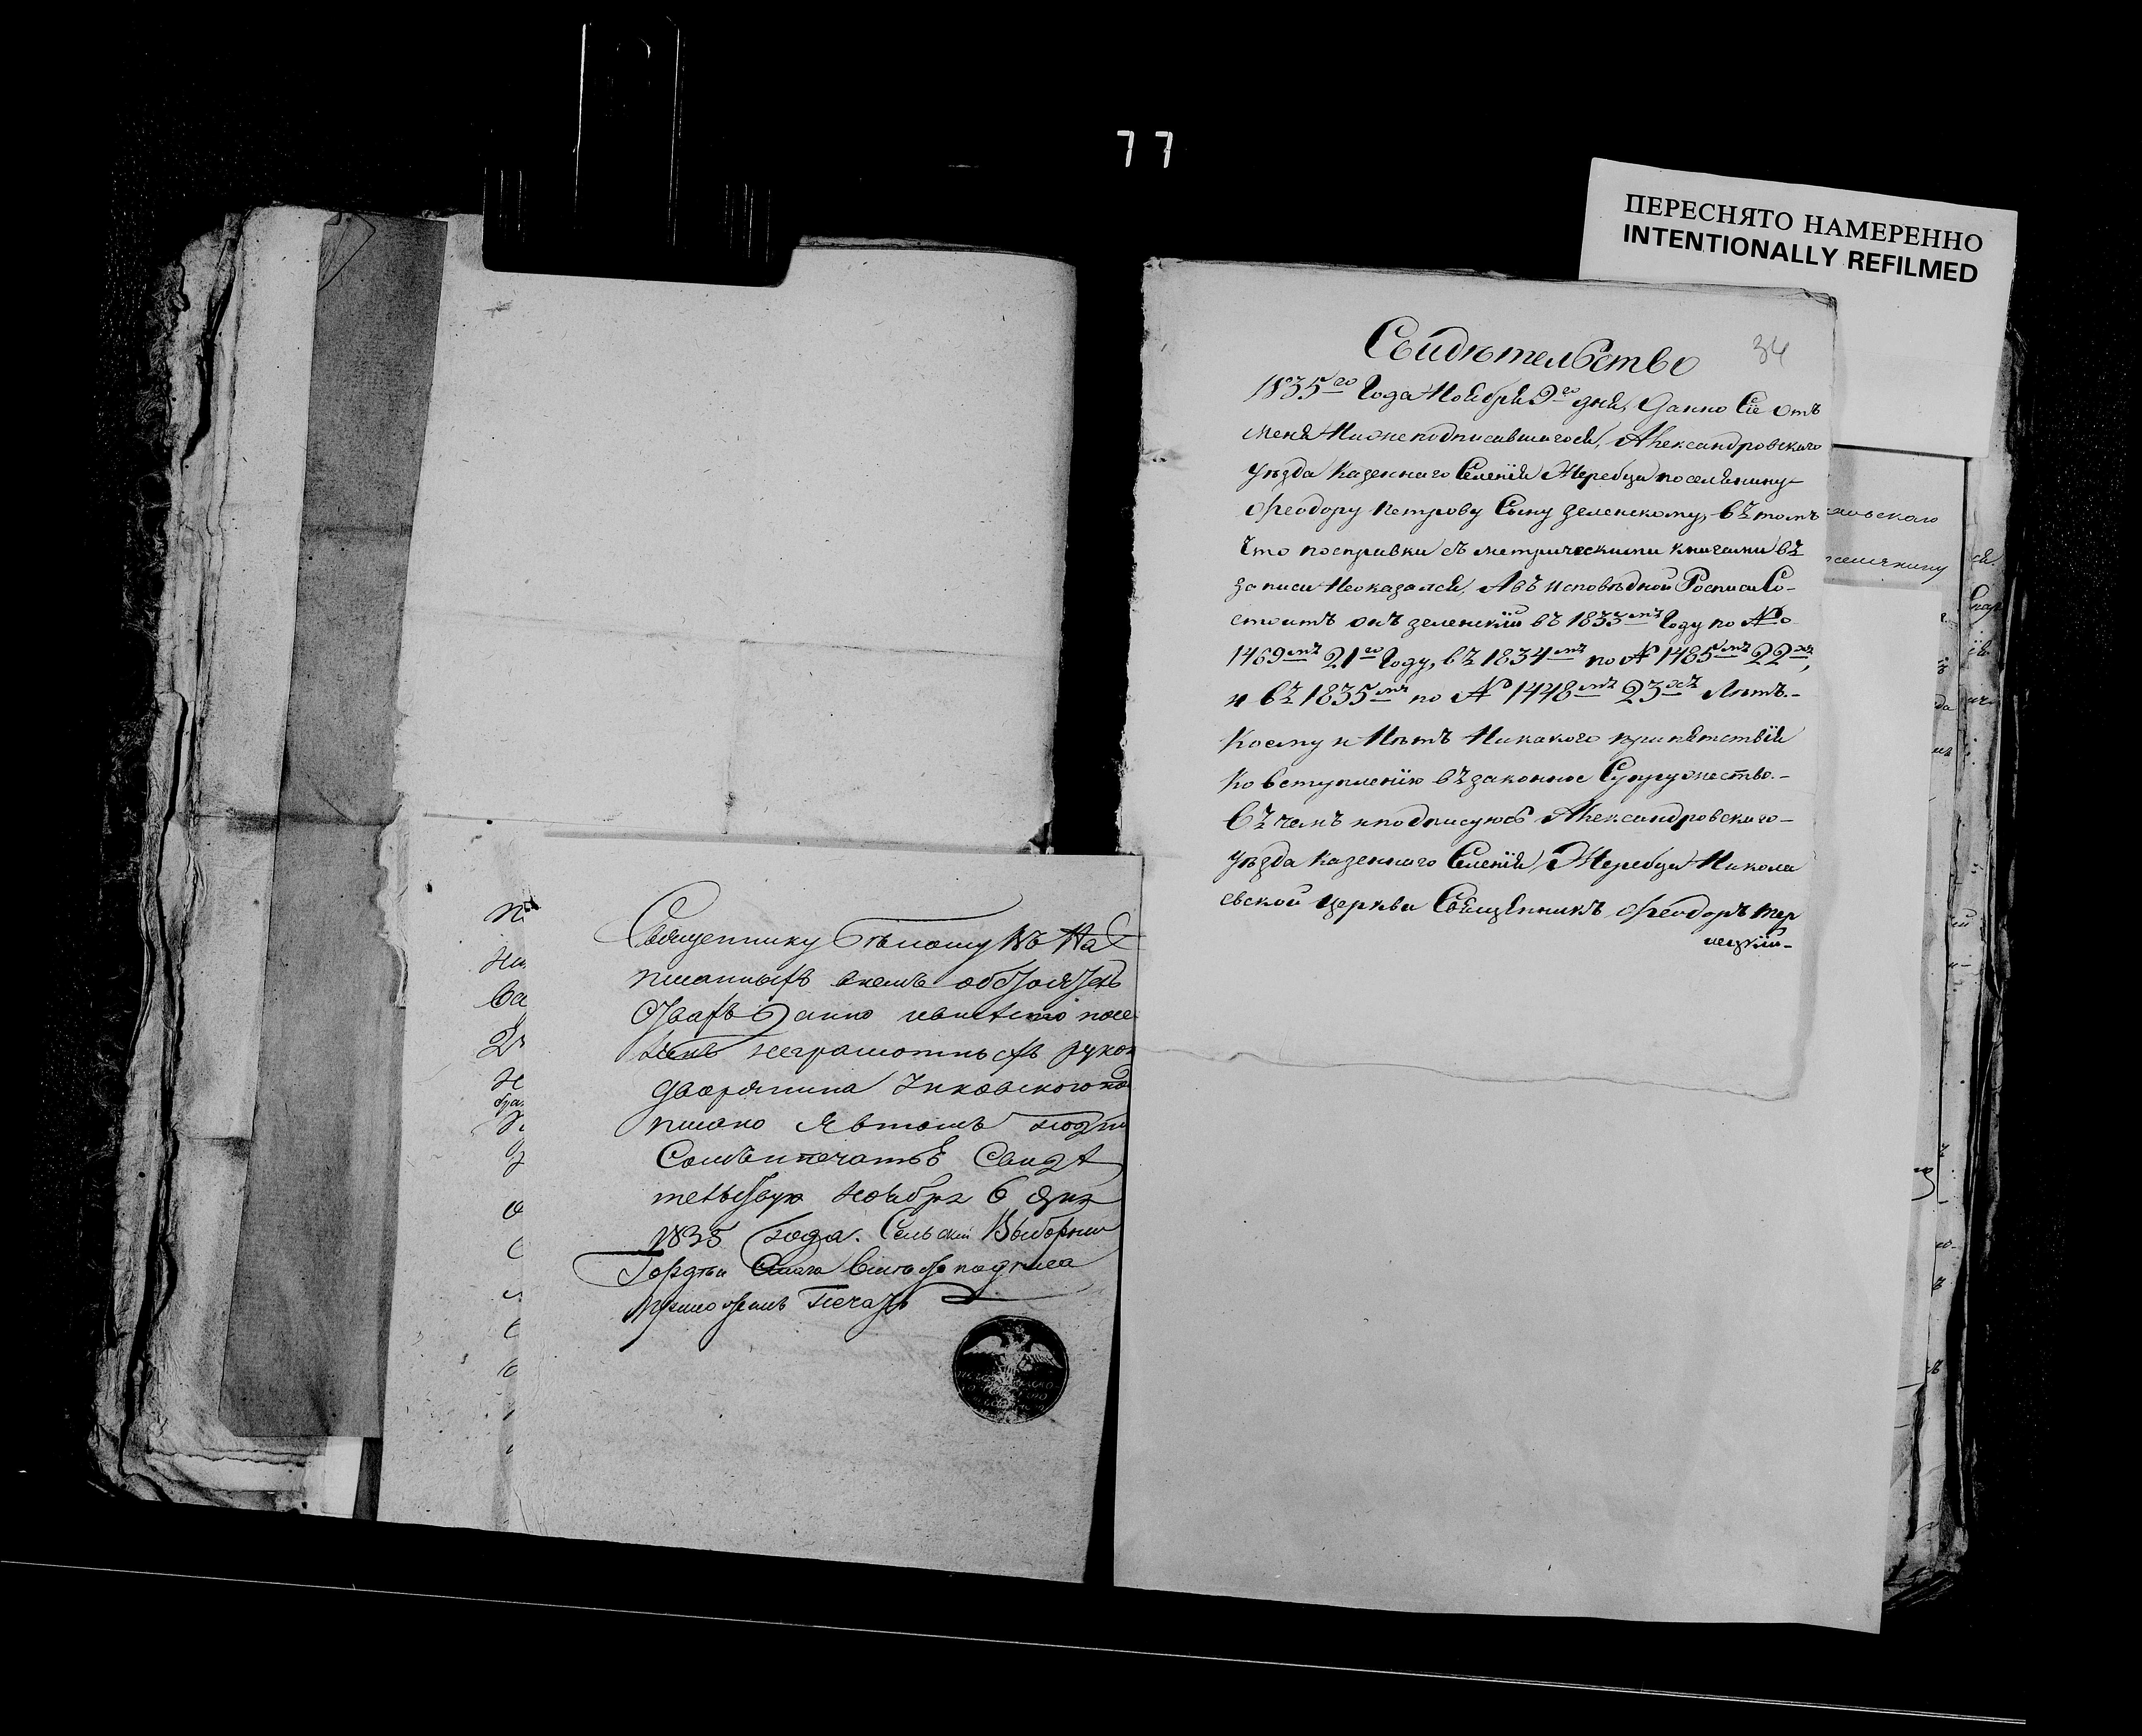 77
ПЕРЕСНЯТО НАМЕРЕННО
INTENTIONALLY REFILMED
34
Свидѣтельство
1835го Года Ноября 9го дня, Дано Сіе отъ
меня Нижеподписавшагося, Александровскаго
уѣзда Казеннаго Селенія Жеребца поселянину
Феодору Петрову Сыну Зеленскому, въ томъ
Что посправки съ метрическими книгами въ
записи Неоказался, Авъ Исповѣдной Росписи Со-
стоитъ онъ зеленскій въ 1833мъ Году по №
1469мъ 21го Году, въ 1834мъ по № 1485мъ 22хъ,
и въ 1835мъ по № 1448мъ 23хъ Лѣтъ.-
Коему и Нѣтъ Никакого припятствія
Ко вступленію въ законное Супружество.-
Въ чемъ и подписуюсь Александровскаго-
уѣзда Казеннаго Селенія Жеребца Никола
евской церкви Священникъ Феодоръ Тер
нецкій-
Священнику Бѣлому Въ На
писанныхъ вкемъ обстоятель
ствахъ Данно
неграмотность руко
дворянина
писано Явтомъ подпи
Сомъ и печатьѣ Свидѣ
тельствую Ноября 6 дня
1835 года. Сельскій Выборный
Гордѣй
приложилъ Печать